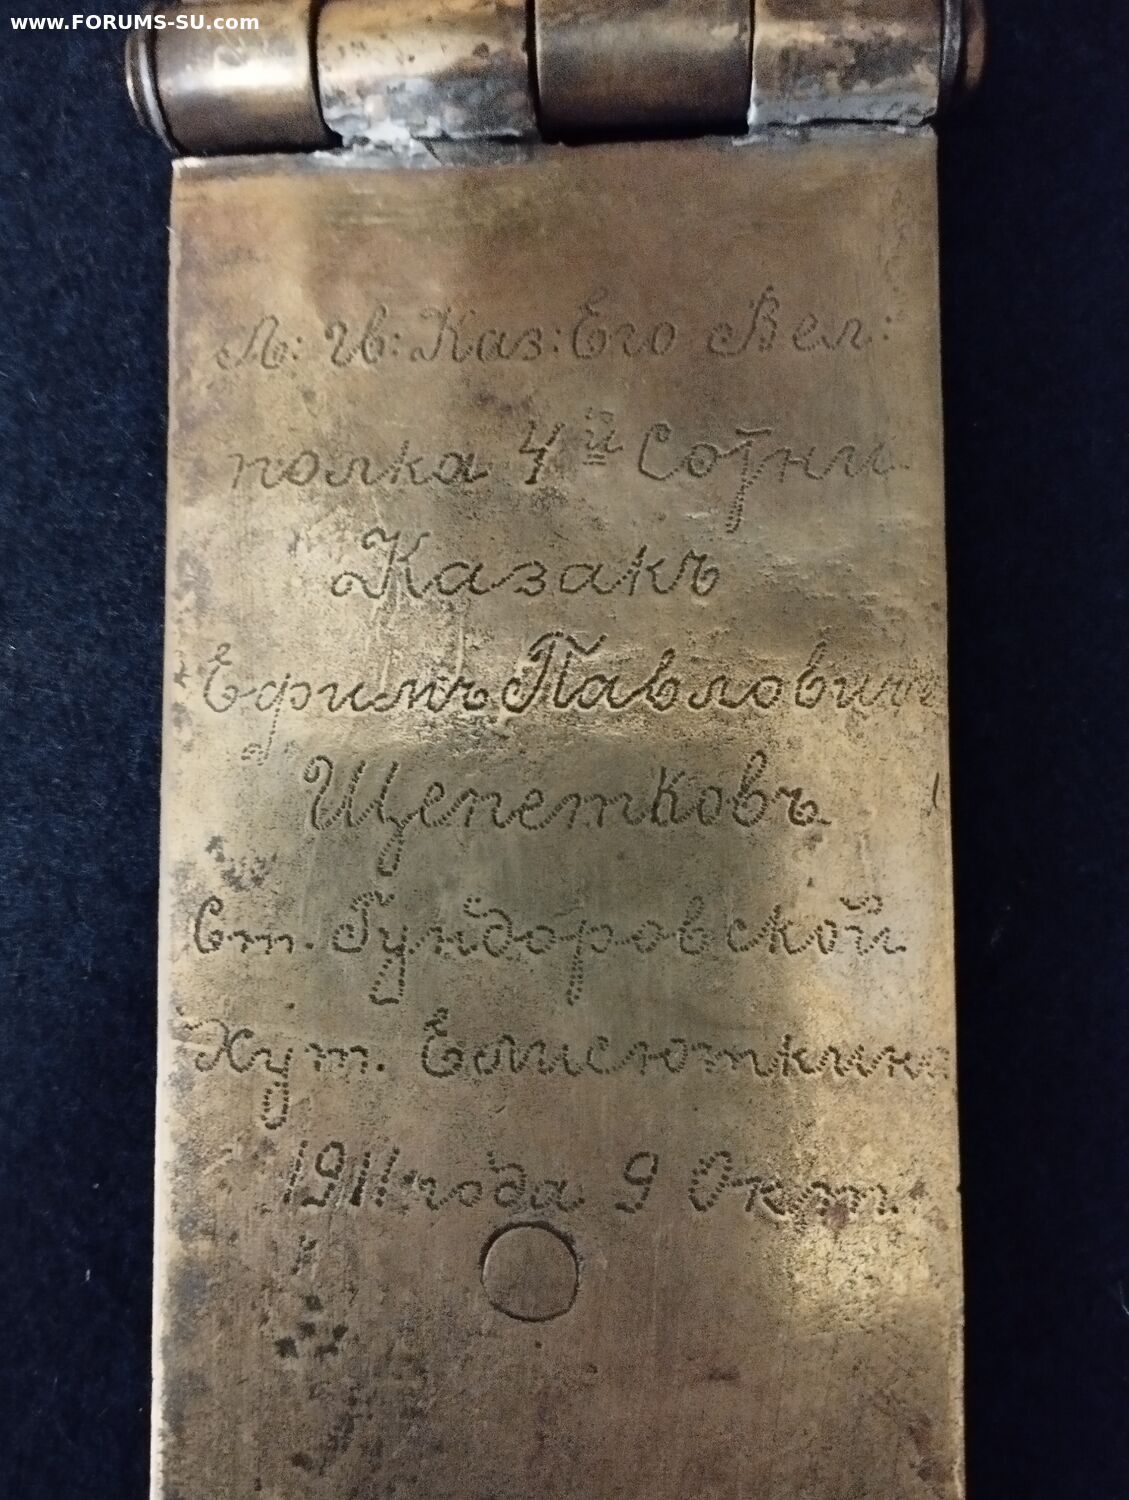 www.FORUMS-SU.com
Л: Гв: Каз: Его Вел:
полка 4й Сотни
Казакъ
Ефимъ Павловичъ
Щепетковъ
Ст. Гундоровской
Хут.
1911 года 9 Окт.